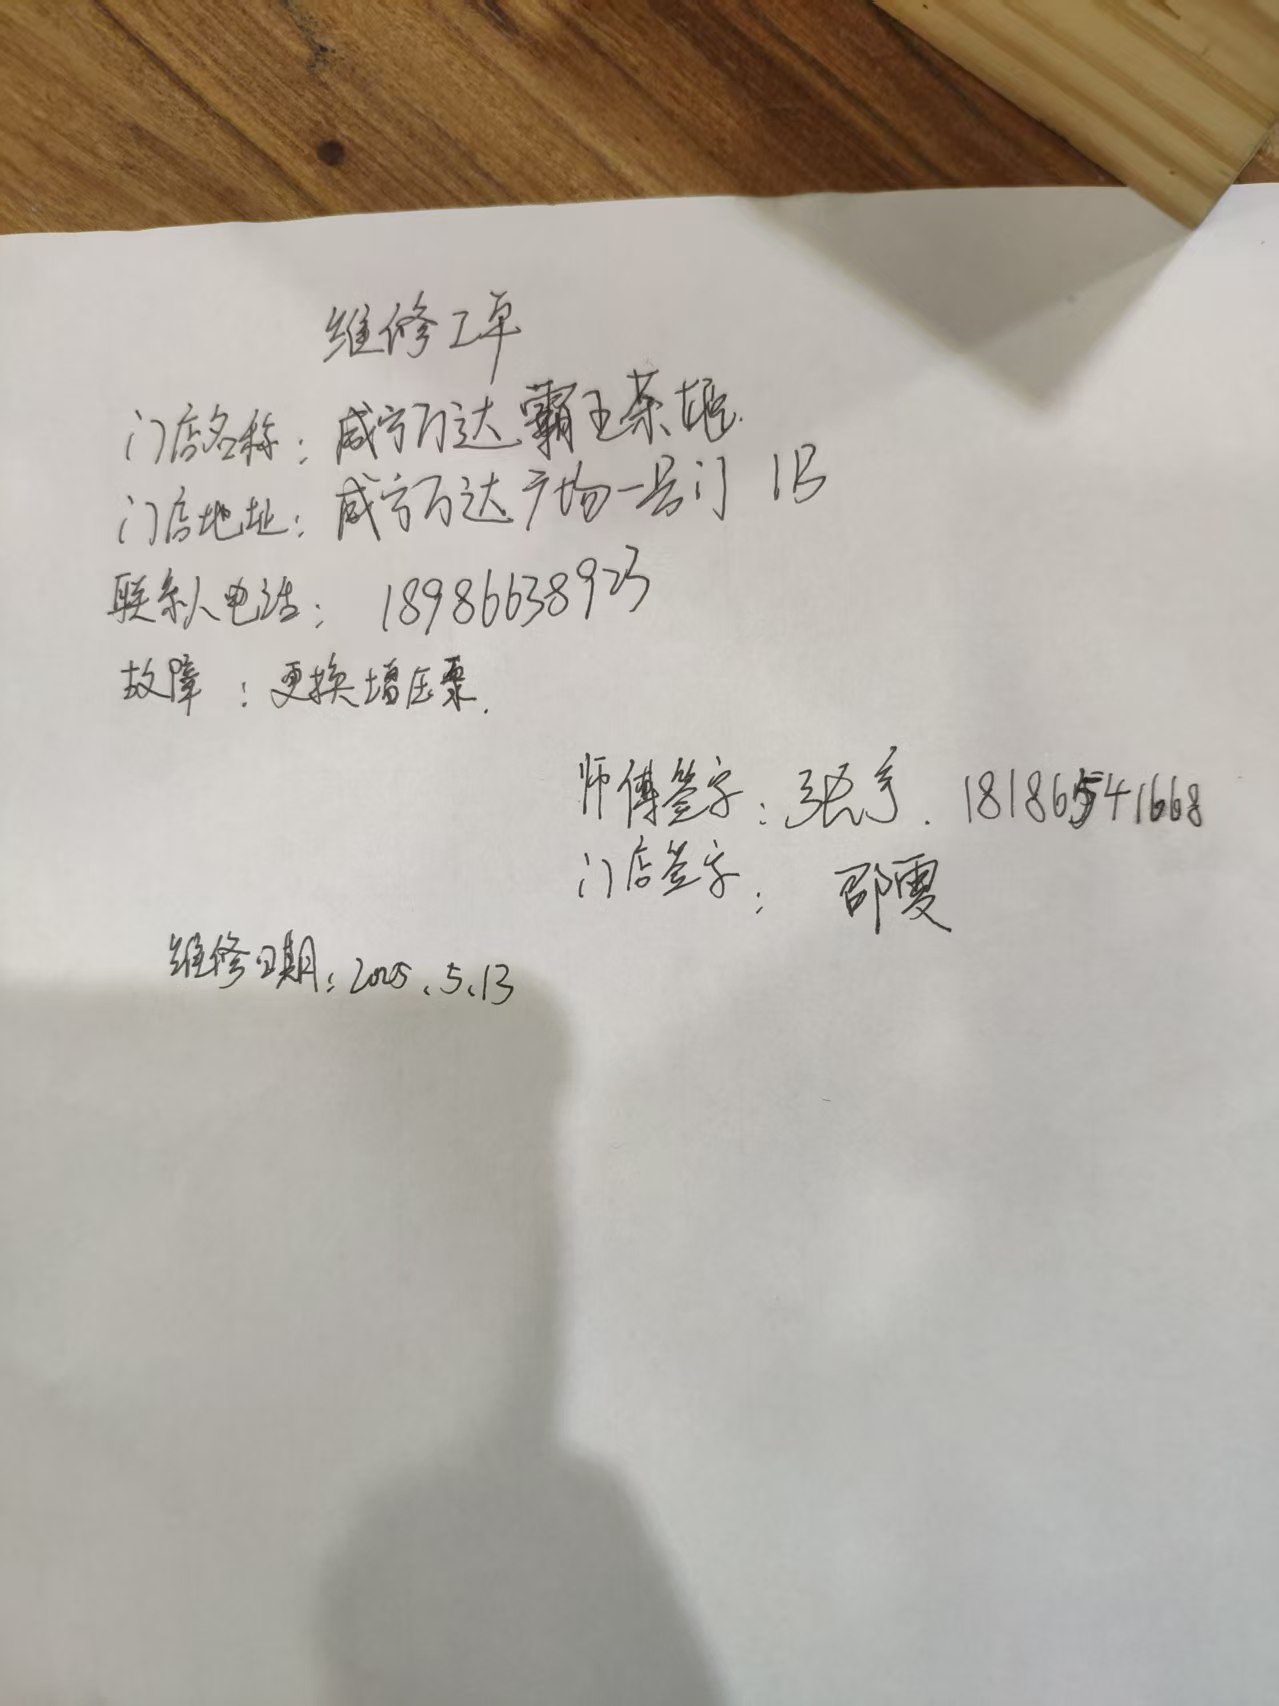 维修工单
门店名称：咸宁万达霸王茶姬.
门店地址：咸宁万达广场一号门 1B
联系人电话：18986638923
故障：更换增压泵.
师傅签字：张宇. 18186541668
门店签字：邵雯
维修日期：2025.5.13